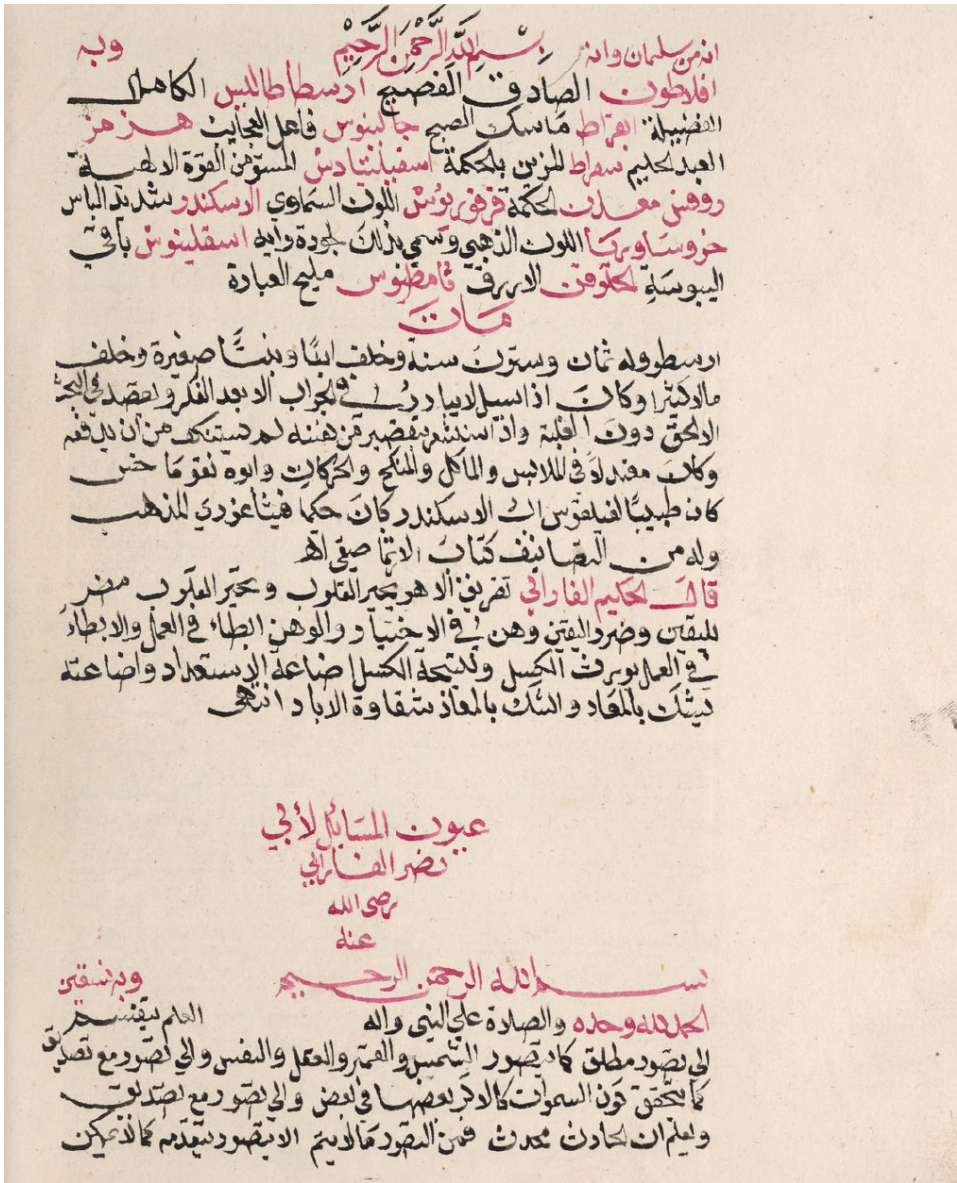 انه من سليمان وانه بِسْمِ اللَّهِ الرَّحْمَنِ الرَّحِيْمِ وبه
افلاطون الصادق الفصيح ارسطاطاليس الكامل
الفضيلة ابقراط ماسك الصبح جالينوس فاعل العجايب هرمز
العبد الحليم سقراط المزين بالحكمة المستوهن القوة الالهية
روفس معدن الحكمة فرفوريوس اللون السماوي الاسكندر شديد الباس
اللون الذهبي وسمي بذلك لجودة رايه اسقلينوس باقي
اليبوسة الازرق ثامطيوس مليح العبادة
مات
ارسطو وله ثمان وستون سنة وخلف ابنًا وبنتًا صغيرة وخلف
مالا كثيرا وكان اذا سيل لا يبادر في الجواب الا بعد الفكر ولا يقصد في البحث
الا الحق دون الغلبة واذا استشعر بتقصير من نفسه لم يستنكف من ان
وكان معتدلاً في الملابس والماكل والمنكح والحركات وابوه نيقوماخس
كان طبيبًا لفيلفوس اب الاسكندر كان حكيما فيثاغوري المذهب
وله من التصانيف كتاب الارثماطيقي اه
قال الحكيم الفارابي تفريق الاهو يحير القلوب وتحير القلوب مضر
لليقين وضرر اليقين وهن في الاختيار والوهن ابطاء في العمل والابطاء
في العمل يورث الكسل ونتيجة الكسل اضاعة الاستعداد واضاعته
تشك بالمعاد والشك بالمعاد شقاوة الاباد انتهى
عيون المسايل لأبي
نصر الفارابي
رضى الله
عنه
بسم الله الرحمن الرحيم وبه نستعين
الحمد لله وحده والصلاة علي النبي واله العلم ينقسم
الي تصور مطلق كما يتصور الشمس والقمر والعقل والنفس والي تصور مع تصديق
كما يتحقق كون السموات كالاكر بعضها في بعض والي تصور مع تصديق
ويعلم ان الحادث محدث فمن التصور ما لا يتم الا بتصور يتقدمه كما لا يمكن